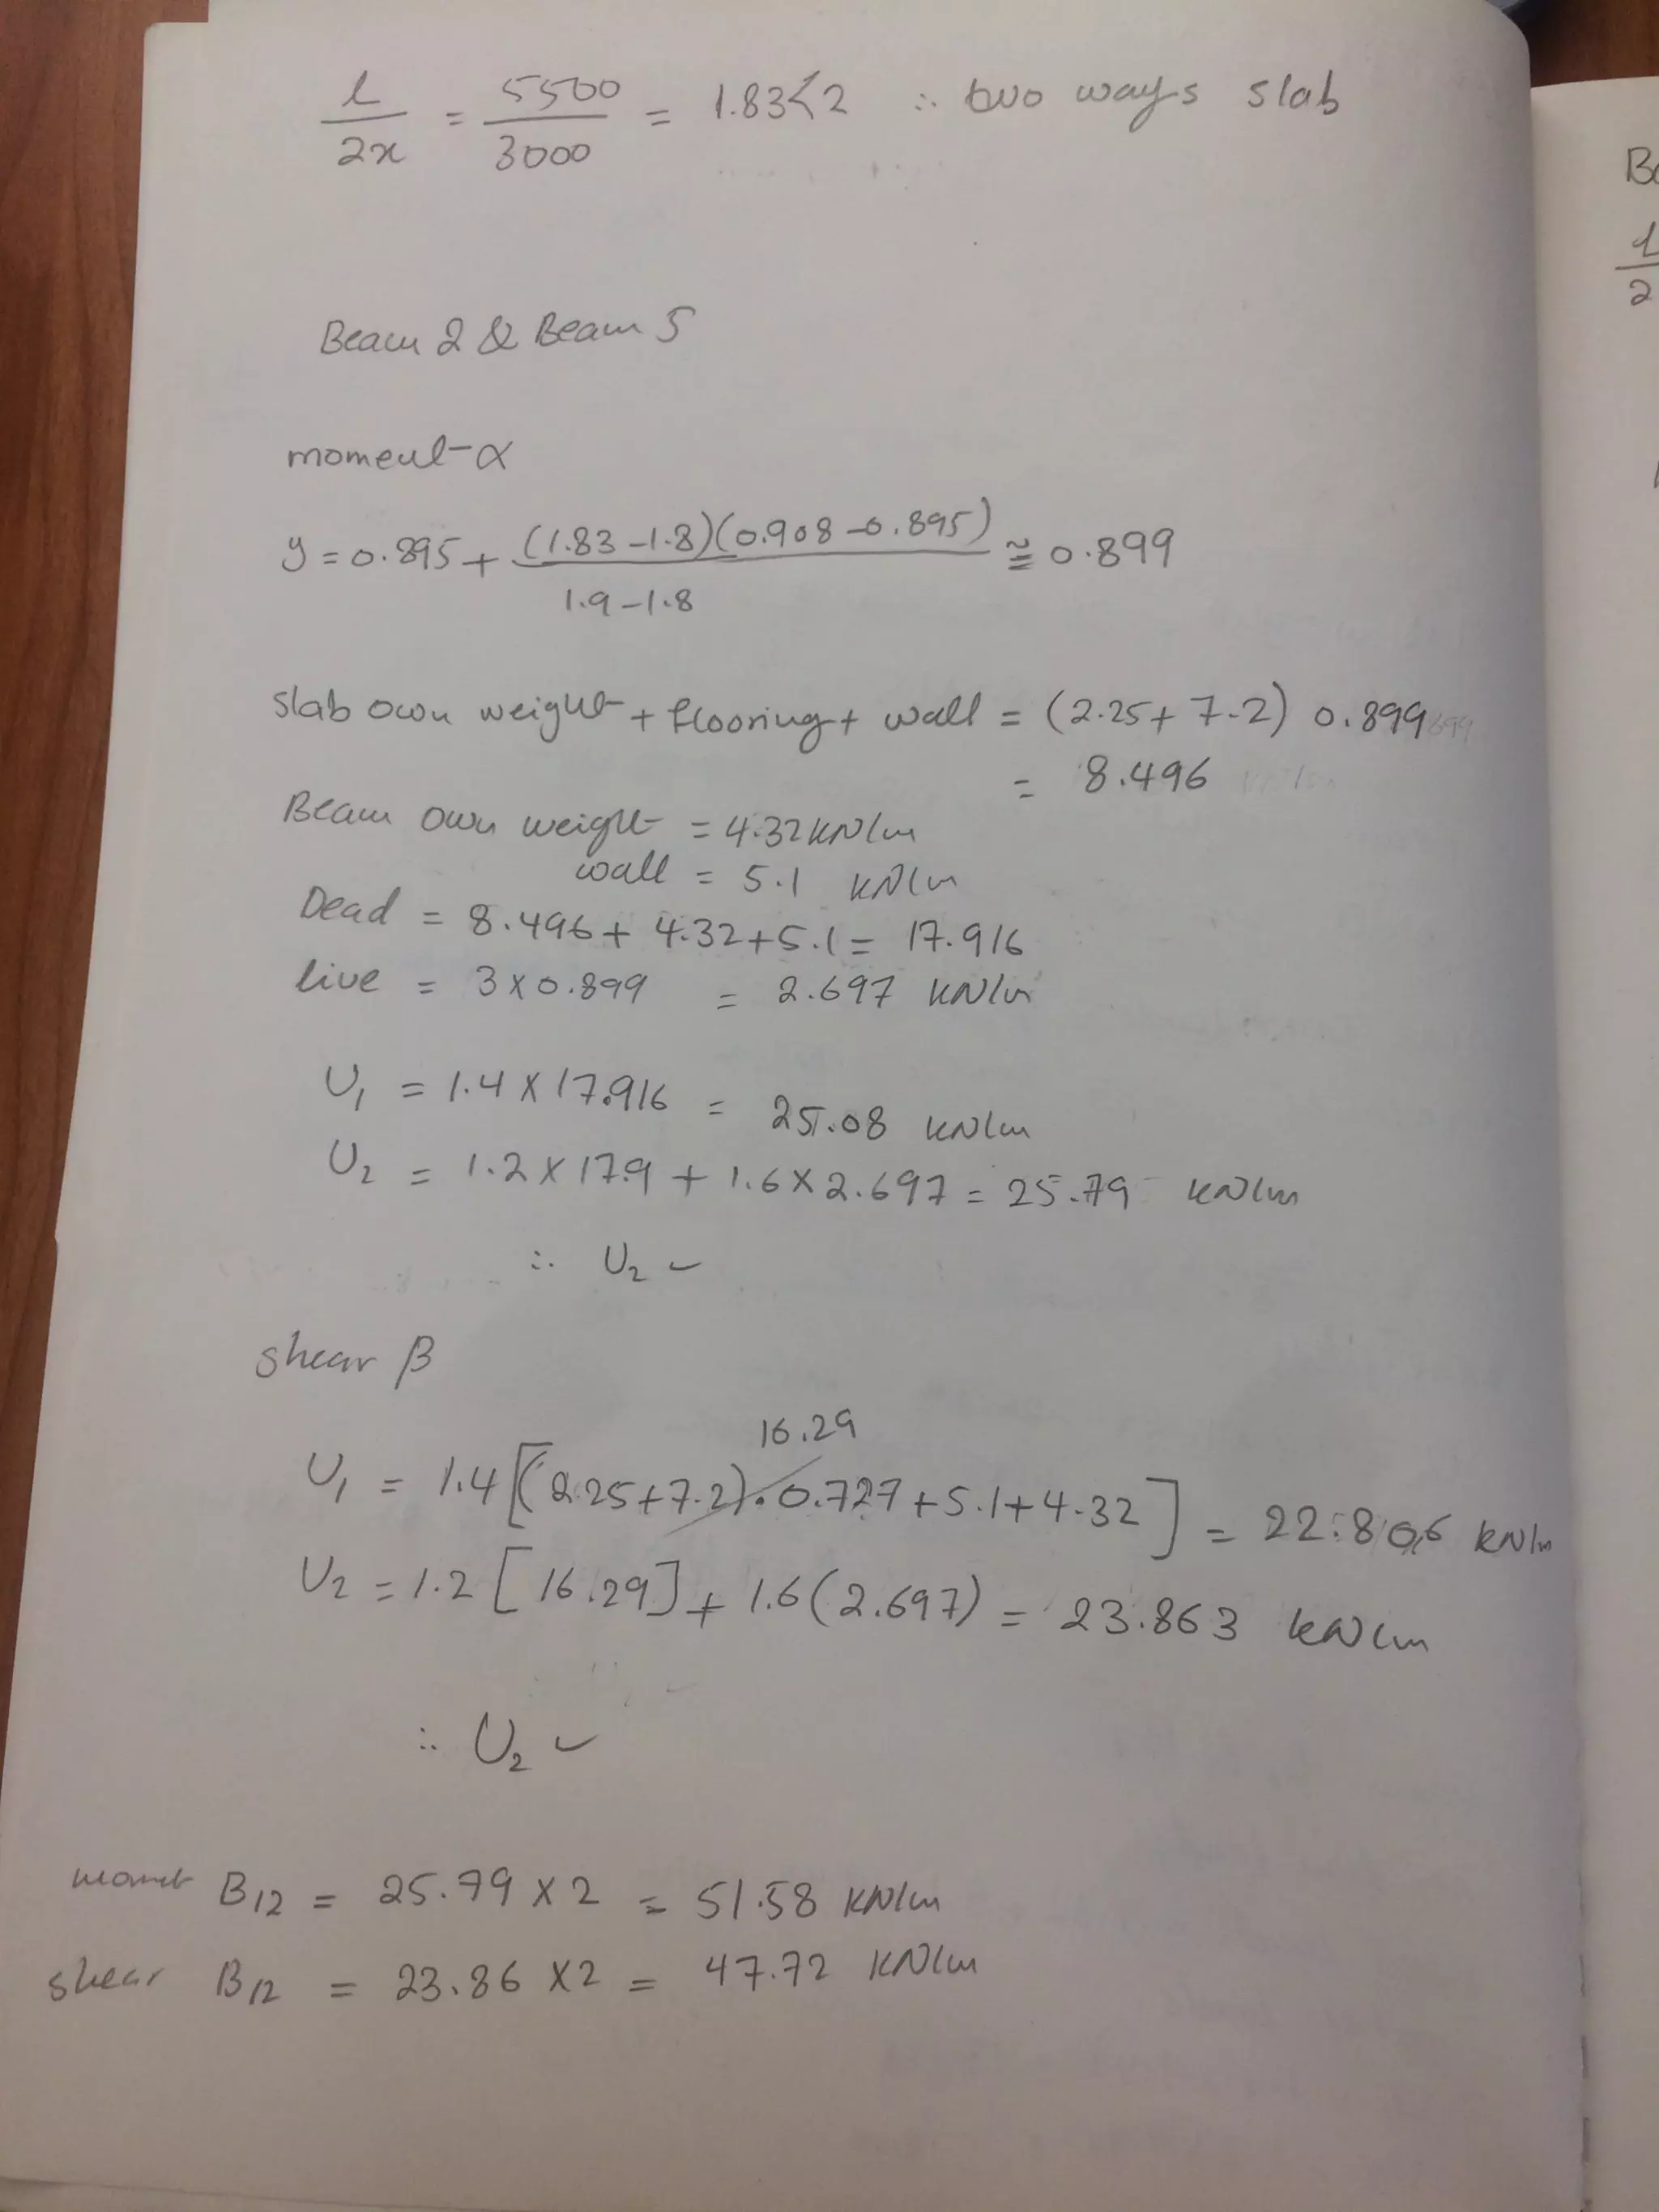 l/2x = 5500/3000 = 1.83<2 ∴ two ways slab
Beam 2 & Beam 5
moment-α
y = 0.895 + (1.83-1.8)(0.908-0.895)/1.9-1.8 ≅ 0.899
slab own weight + flooring + wall = (2.25+7.2) 0.899
= 8.496
Beam own weight = 4.32 kN/m
wall = 5.1 kN/m
Dead = 8.496 + 4.32+5.1 = 17.916
live = 3x0.899 = 2.697 kN/m
U1 = 1.4 x 17.916 = 25.08 kN/m
U2 = 1.2 x 17.9 + 1.6 x 2.697 = 25.79 kN/m
∴ U2 ✓
shear β
16.29
U1 = 1.4[(2.25+7.2).0.727+5.1+4.32] = 22.806 kN/m
U2 = 1.2 [16.29] + 1.6(2.697) = 23.863 kN/m
∴ U2 ✓
B12 = 25.79 x 2 = 51.58 kN/m
shear B12 = 23.86 x2 = 47.72 kN/m
B
l
2